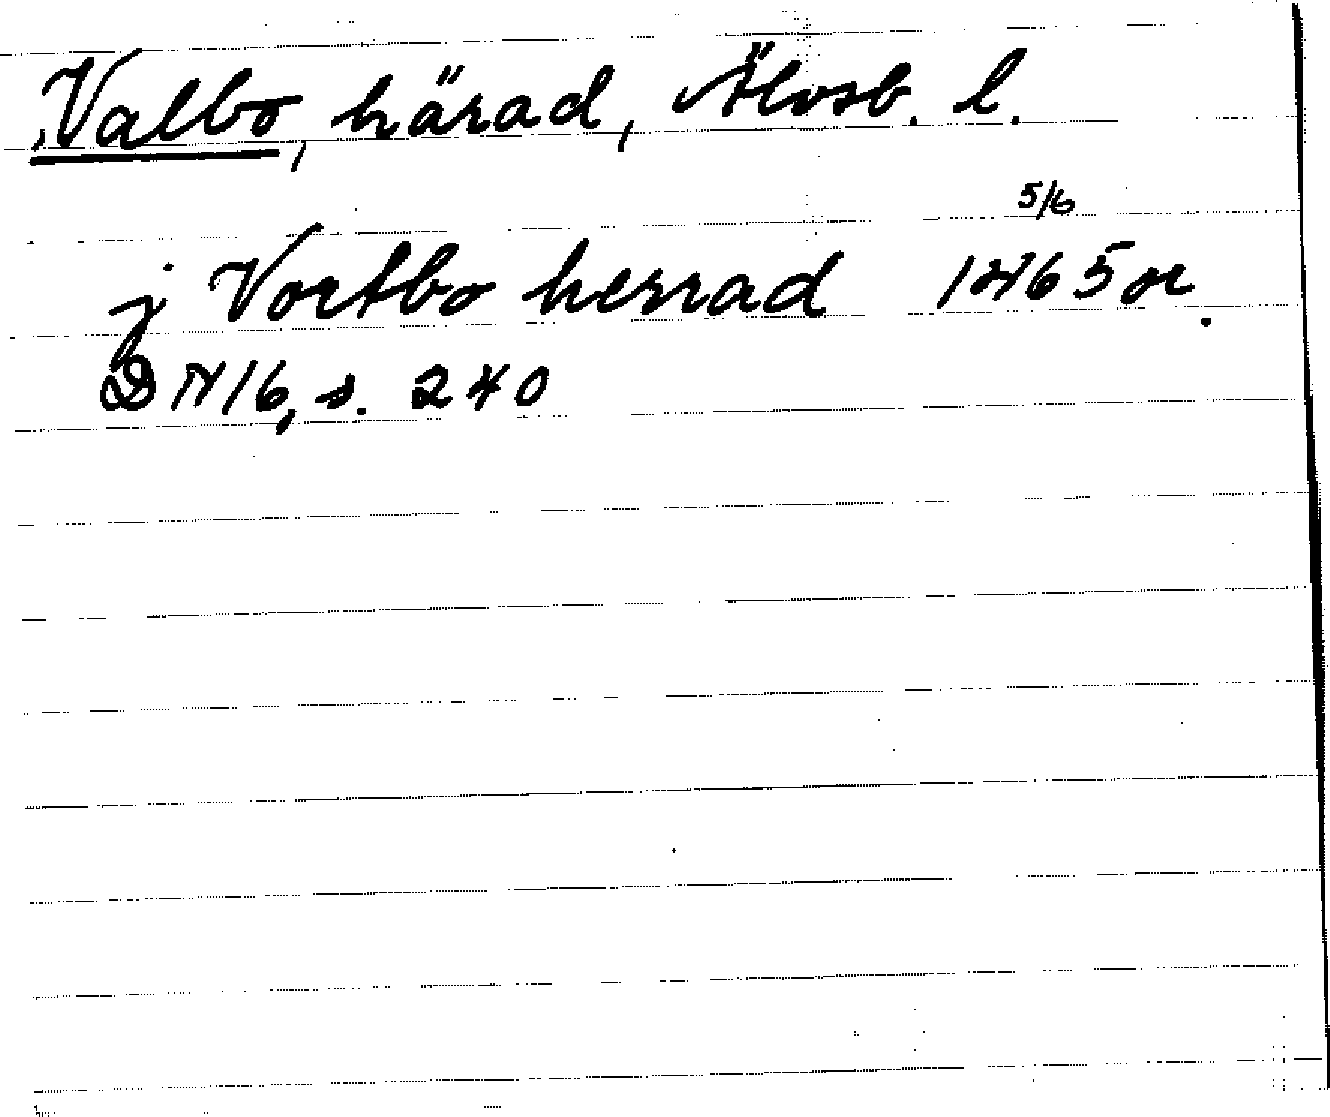 Valbo, härad, Älvsb. l.
j Vortbo herrad 5/6 1465 or.
DN 16, s. 240